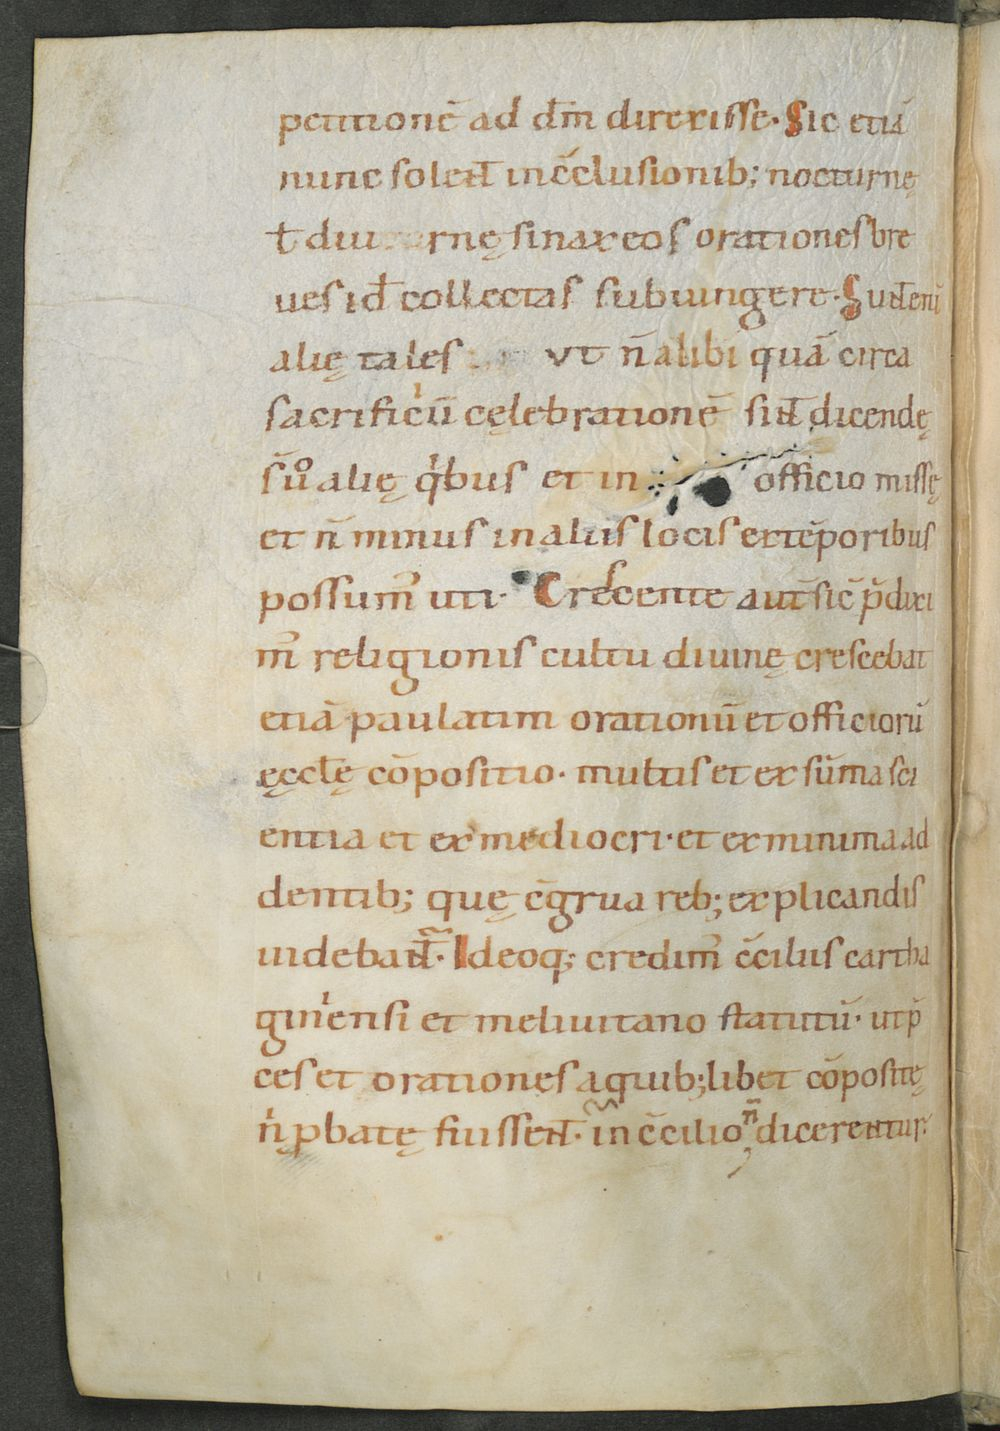 petitionē ad dm̄ direxisse. Sic etiā
nunc solent in c̄clusionib; nocturnę
ł diurnę sinaxeos orationes bre
ues id ̄ collectas subiungere. Sunt eni
alię tales ut n̄ alibi quā circa
sacrificiū cęlebrationē sint dicendę
s̄ uͦ alię qͥbus et in officio missę
et n̄ minus in aliis locis et tēporibus
possumꝰ uti. Crescente aut̄ sic̄ p̄dixi
mꝰ religionis cultu diuinę crescebat
etiā paulatim orationū et officiorū
ęcclę̄ cōpositio. multis et ex sūma sci
entia et ex mediocri. et ex minima ad
dentib; quę c̄grua reb; explicandis
uidebant̄. Ideoq; credimꝰ c̄ciliis cartha
giniensi et meliuitano statutū. ut p̄
ces et orationes a quib;libet cōpositę
nͥ ꝓbatę fuissent. in c̄cilio n̄ dicerentur.